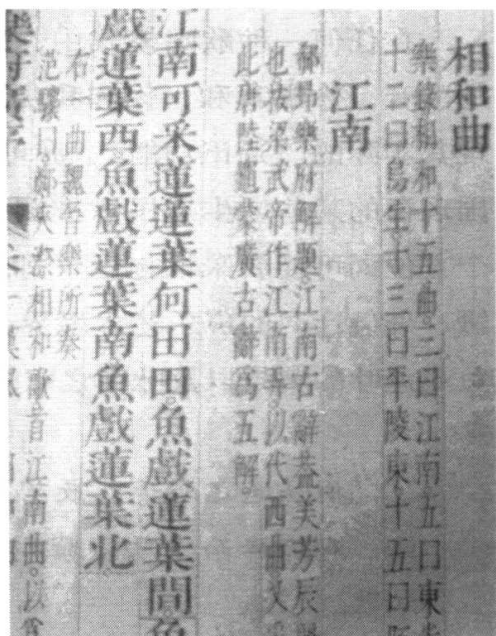 相和曲
樂錄相和十五曲。三曰江南五曰東
十二曰烏生。十三曰平陵東十五曰
江南
郗昂樂府解題。江南古辭蓋美芳辰
也按梁武帝作江南弄。以代西曲又
此唐陸龜蒙廣古辭爲五解。
江南可采蓮蓮葉何田田。魚戲蓮葉間魚
戲蓮葉西魚戲蓮葉南魚戲蓮葉北
右一曲魏晉樂所奏
范驥曰。鄭夾漈相和歌首江南曲。以爲
樂府廣序